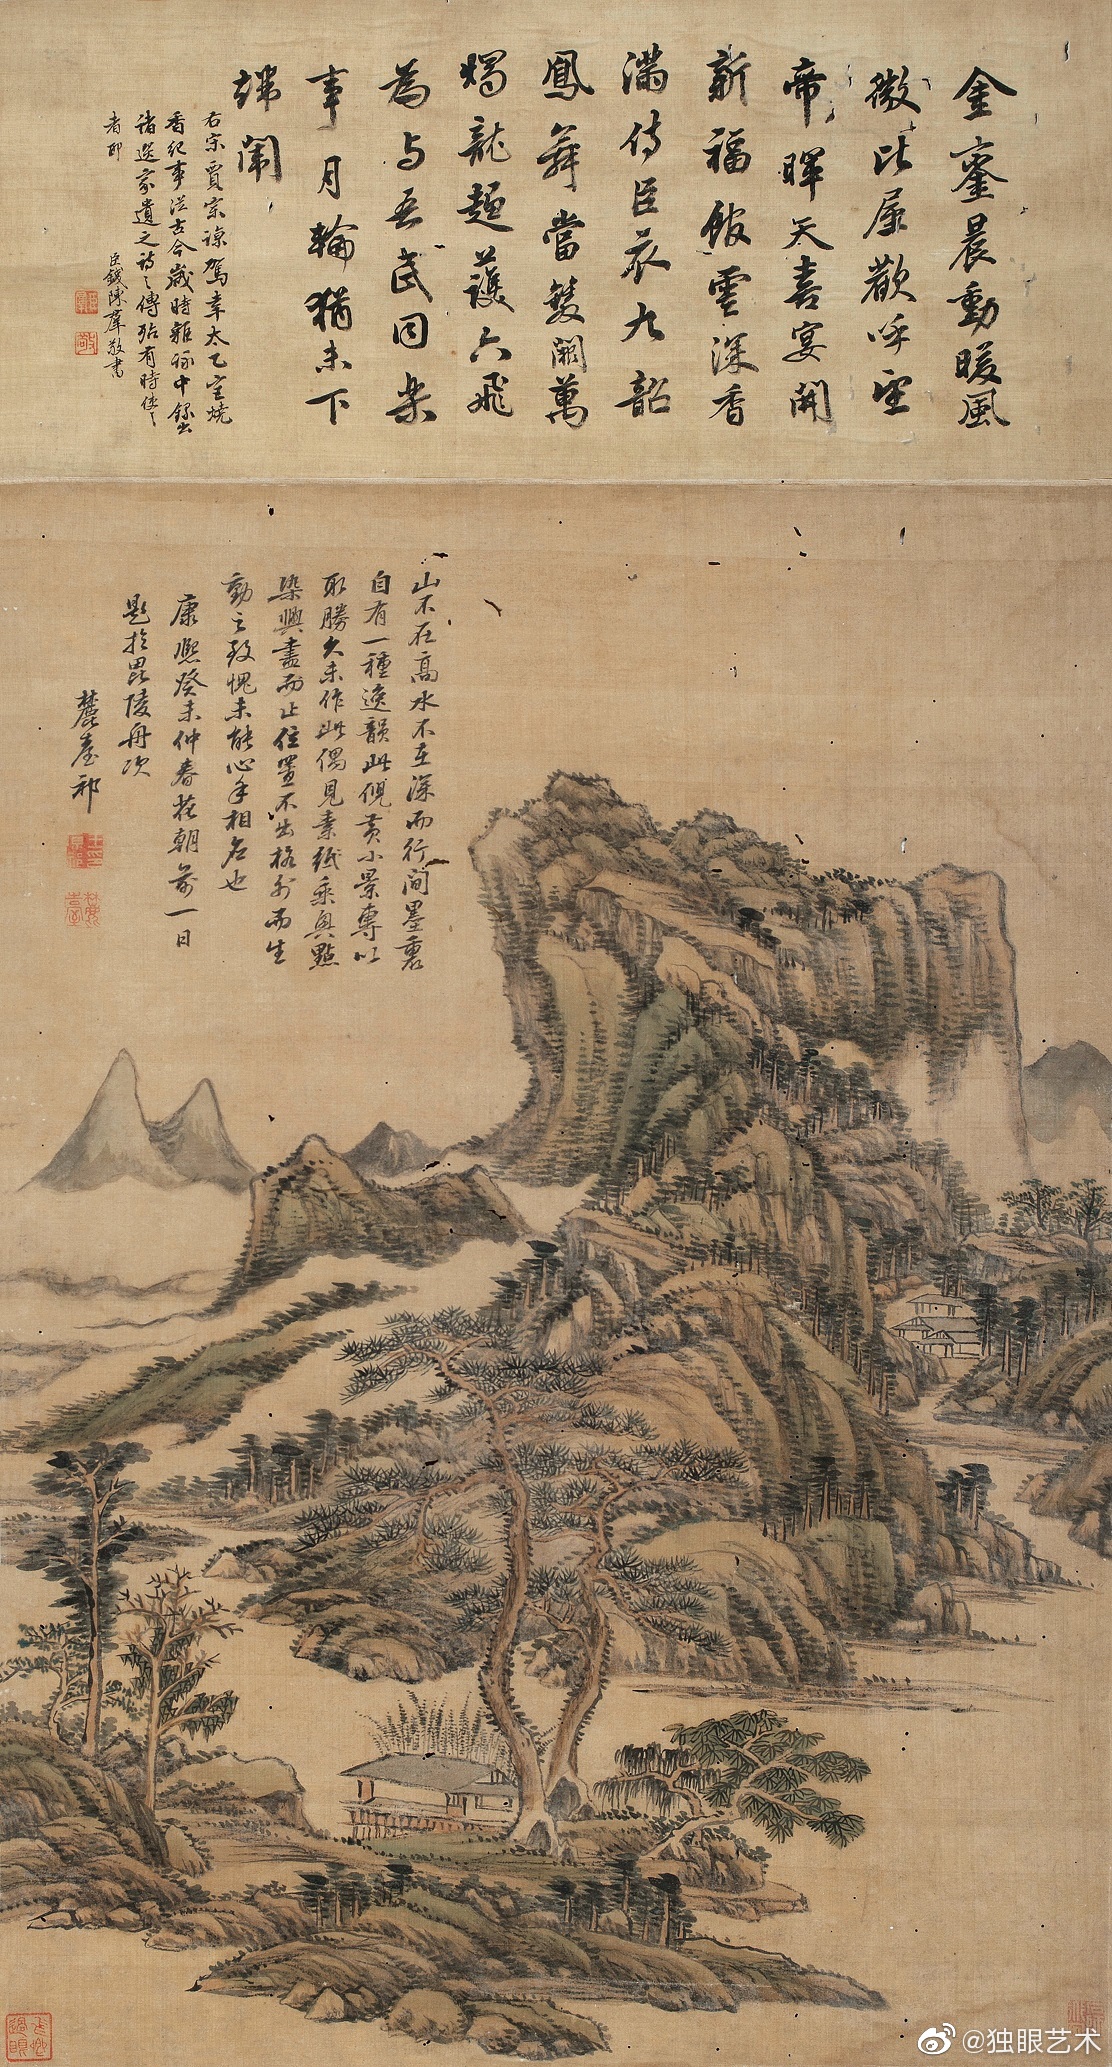 金銮晨動暖風
微比屋歡呼望
帝暉天喜宴開
新福館雲深香
滿侍臣衣九韶
鳳舞當雙闕萬
燭龍趨護六飛
為与吾民同樂
事月輪猶未下
端闈
右宋賈宗諒駕幸太乙宮燒
香紀事從古今歲時雜詠中錄出
諸選家遺之詩之傳
者耶
臣錢陳羣敬書
山不在高水不在深而行間墨裏
自有一種逸韻此倪黃小景專以
取勝久未作此偶見素紙乘興點
染興盡而止位置不出格外而生
動之致愧未能心手相忘也
康熙癸未仲春花朝前一日
題於毘陵舟次
麓臺祁
@独眼艺术